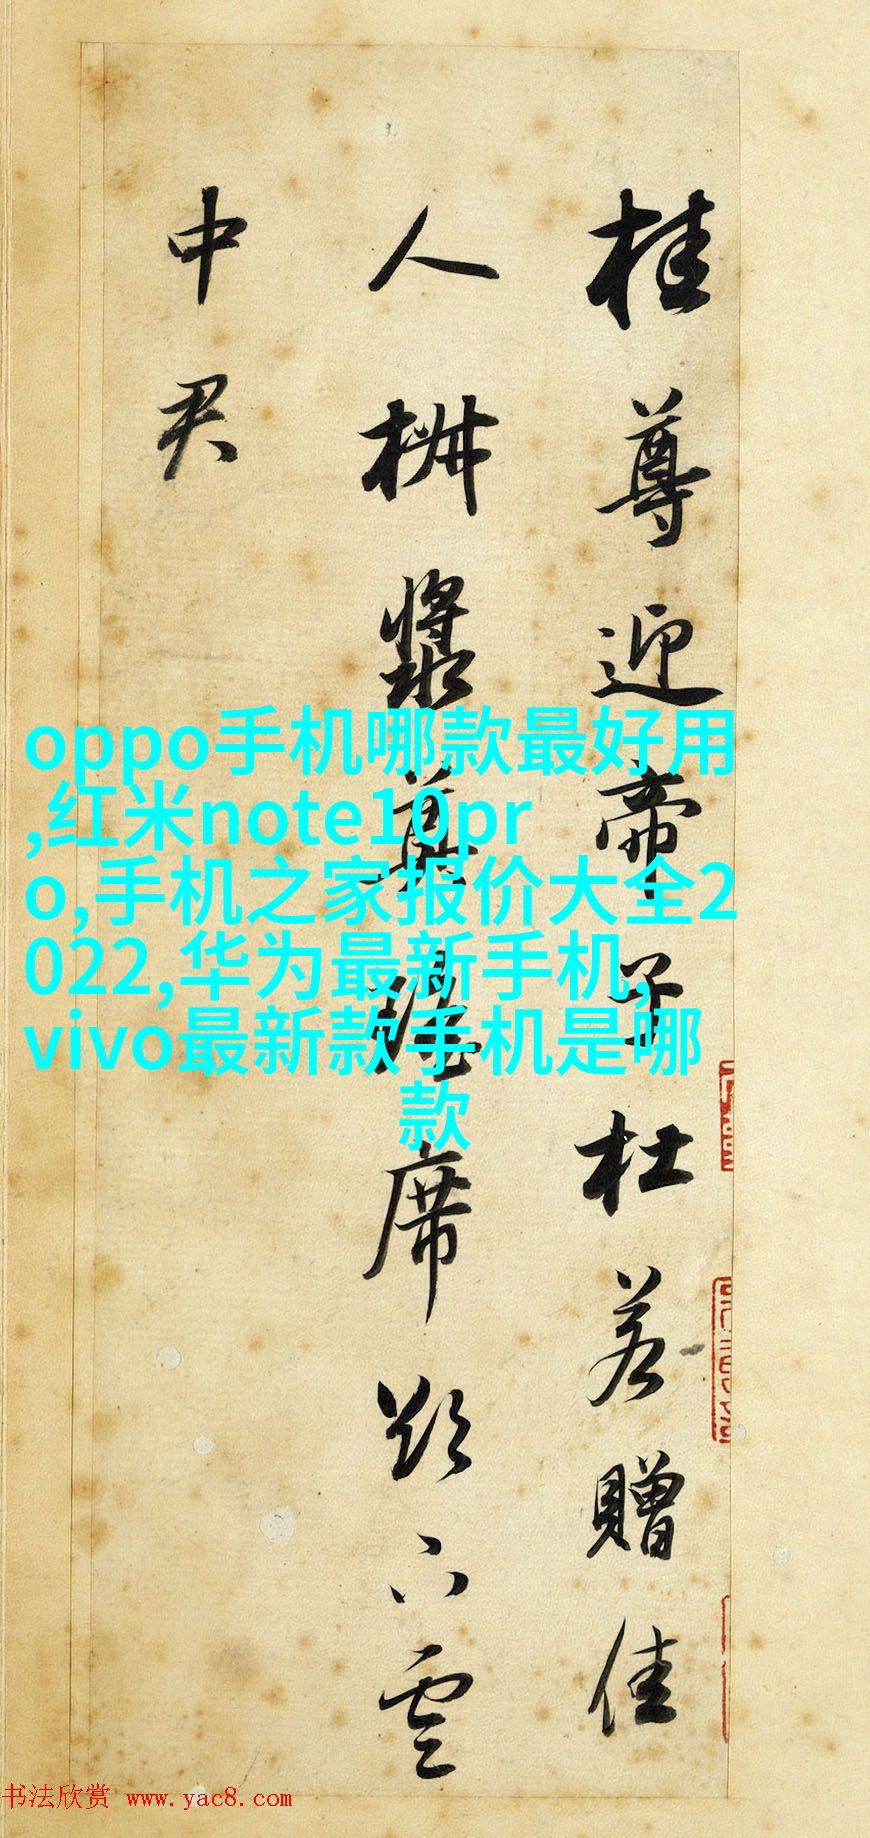 桂尊迎帝子杜若贈佳
人椒漿奠瑤席欲下雲
中君
oppo手机哪款最好用
,红米note10pr
o,手机之家报价大全2
022,华为最新手机,
vivo最新款手机是哪
款
书法欣赏 www.yac8.com